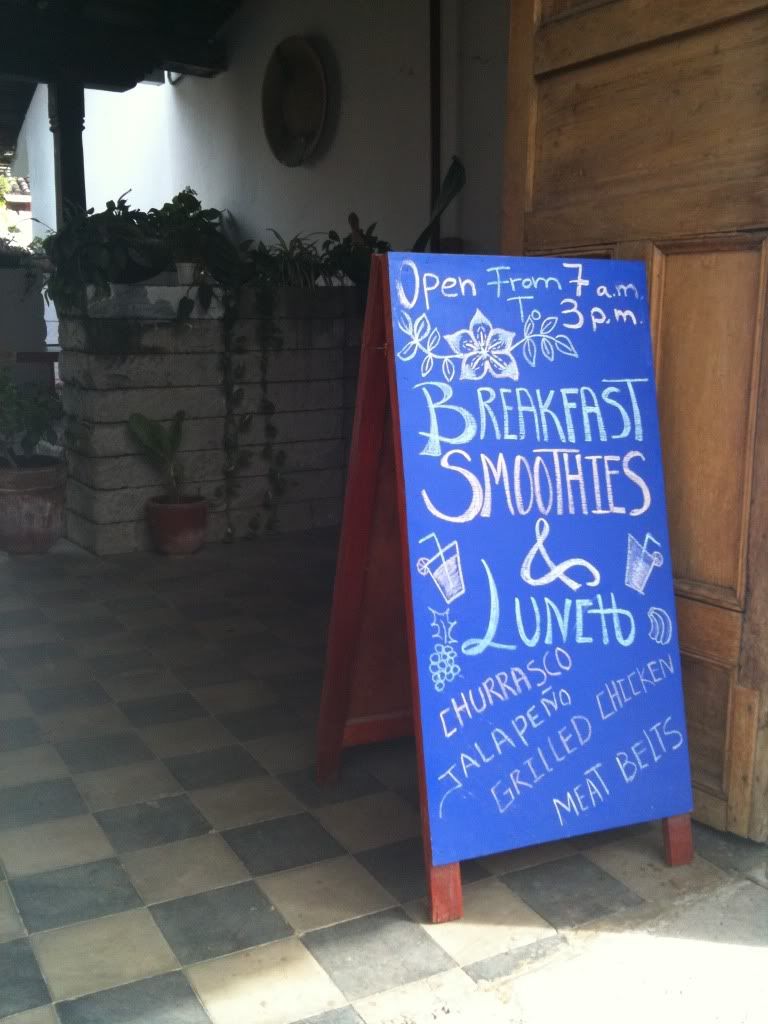 Open From 7 a.m.
To 3 p.m.
BREAKFAST
SMOOTHIES
&
LUNCH
CHURRASCO
JALAPEÑO
GRILLED CHICKEN
MEAT BELTS